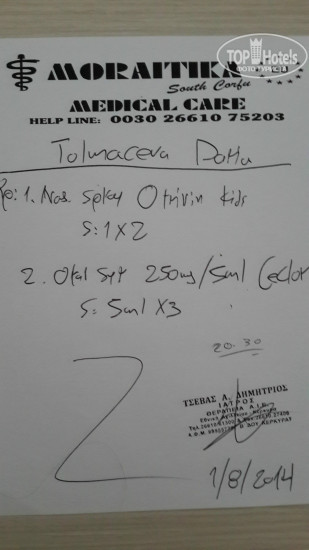 TOP Hotels
MORAITIKA
South Corfu
MEDICAL CARE
HELP LINE: 0030 26610 75203
Tolmaceva Dotta
Rp: 1. Nas. spray Otrivin kids
S: 1X2
2. Oral syr 250mg/5ml Ceclor
S: 5ml X3
20.30
ΤΣΕΒΑΣ Λ. ΔΗΜΗΤΡΙΟΣ
ΙΑΤΡΟΣ
ΘΕΡΑΠΕΙΑ Α.Ι.Ε.
1/8/2014